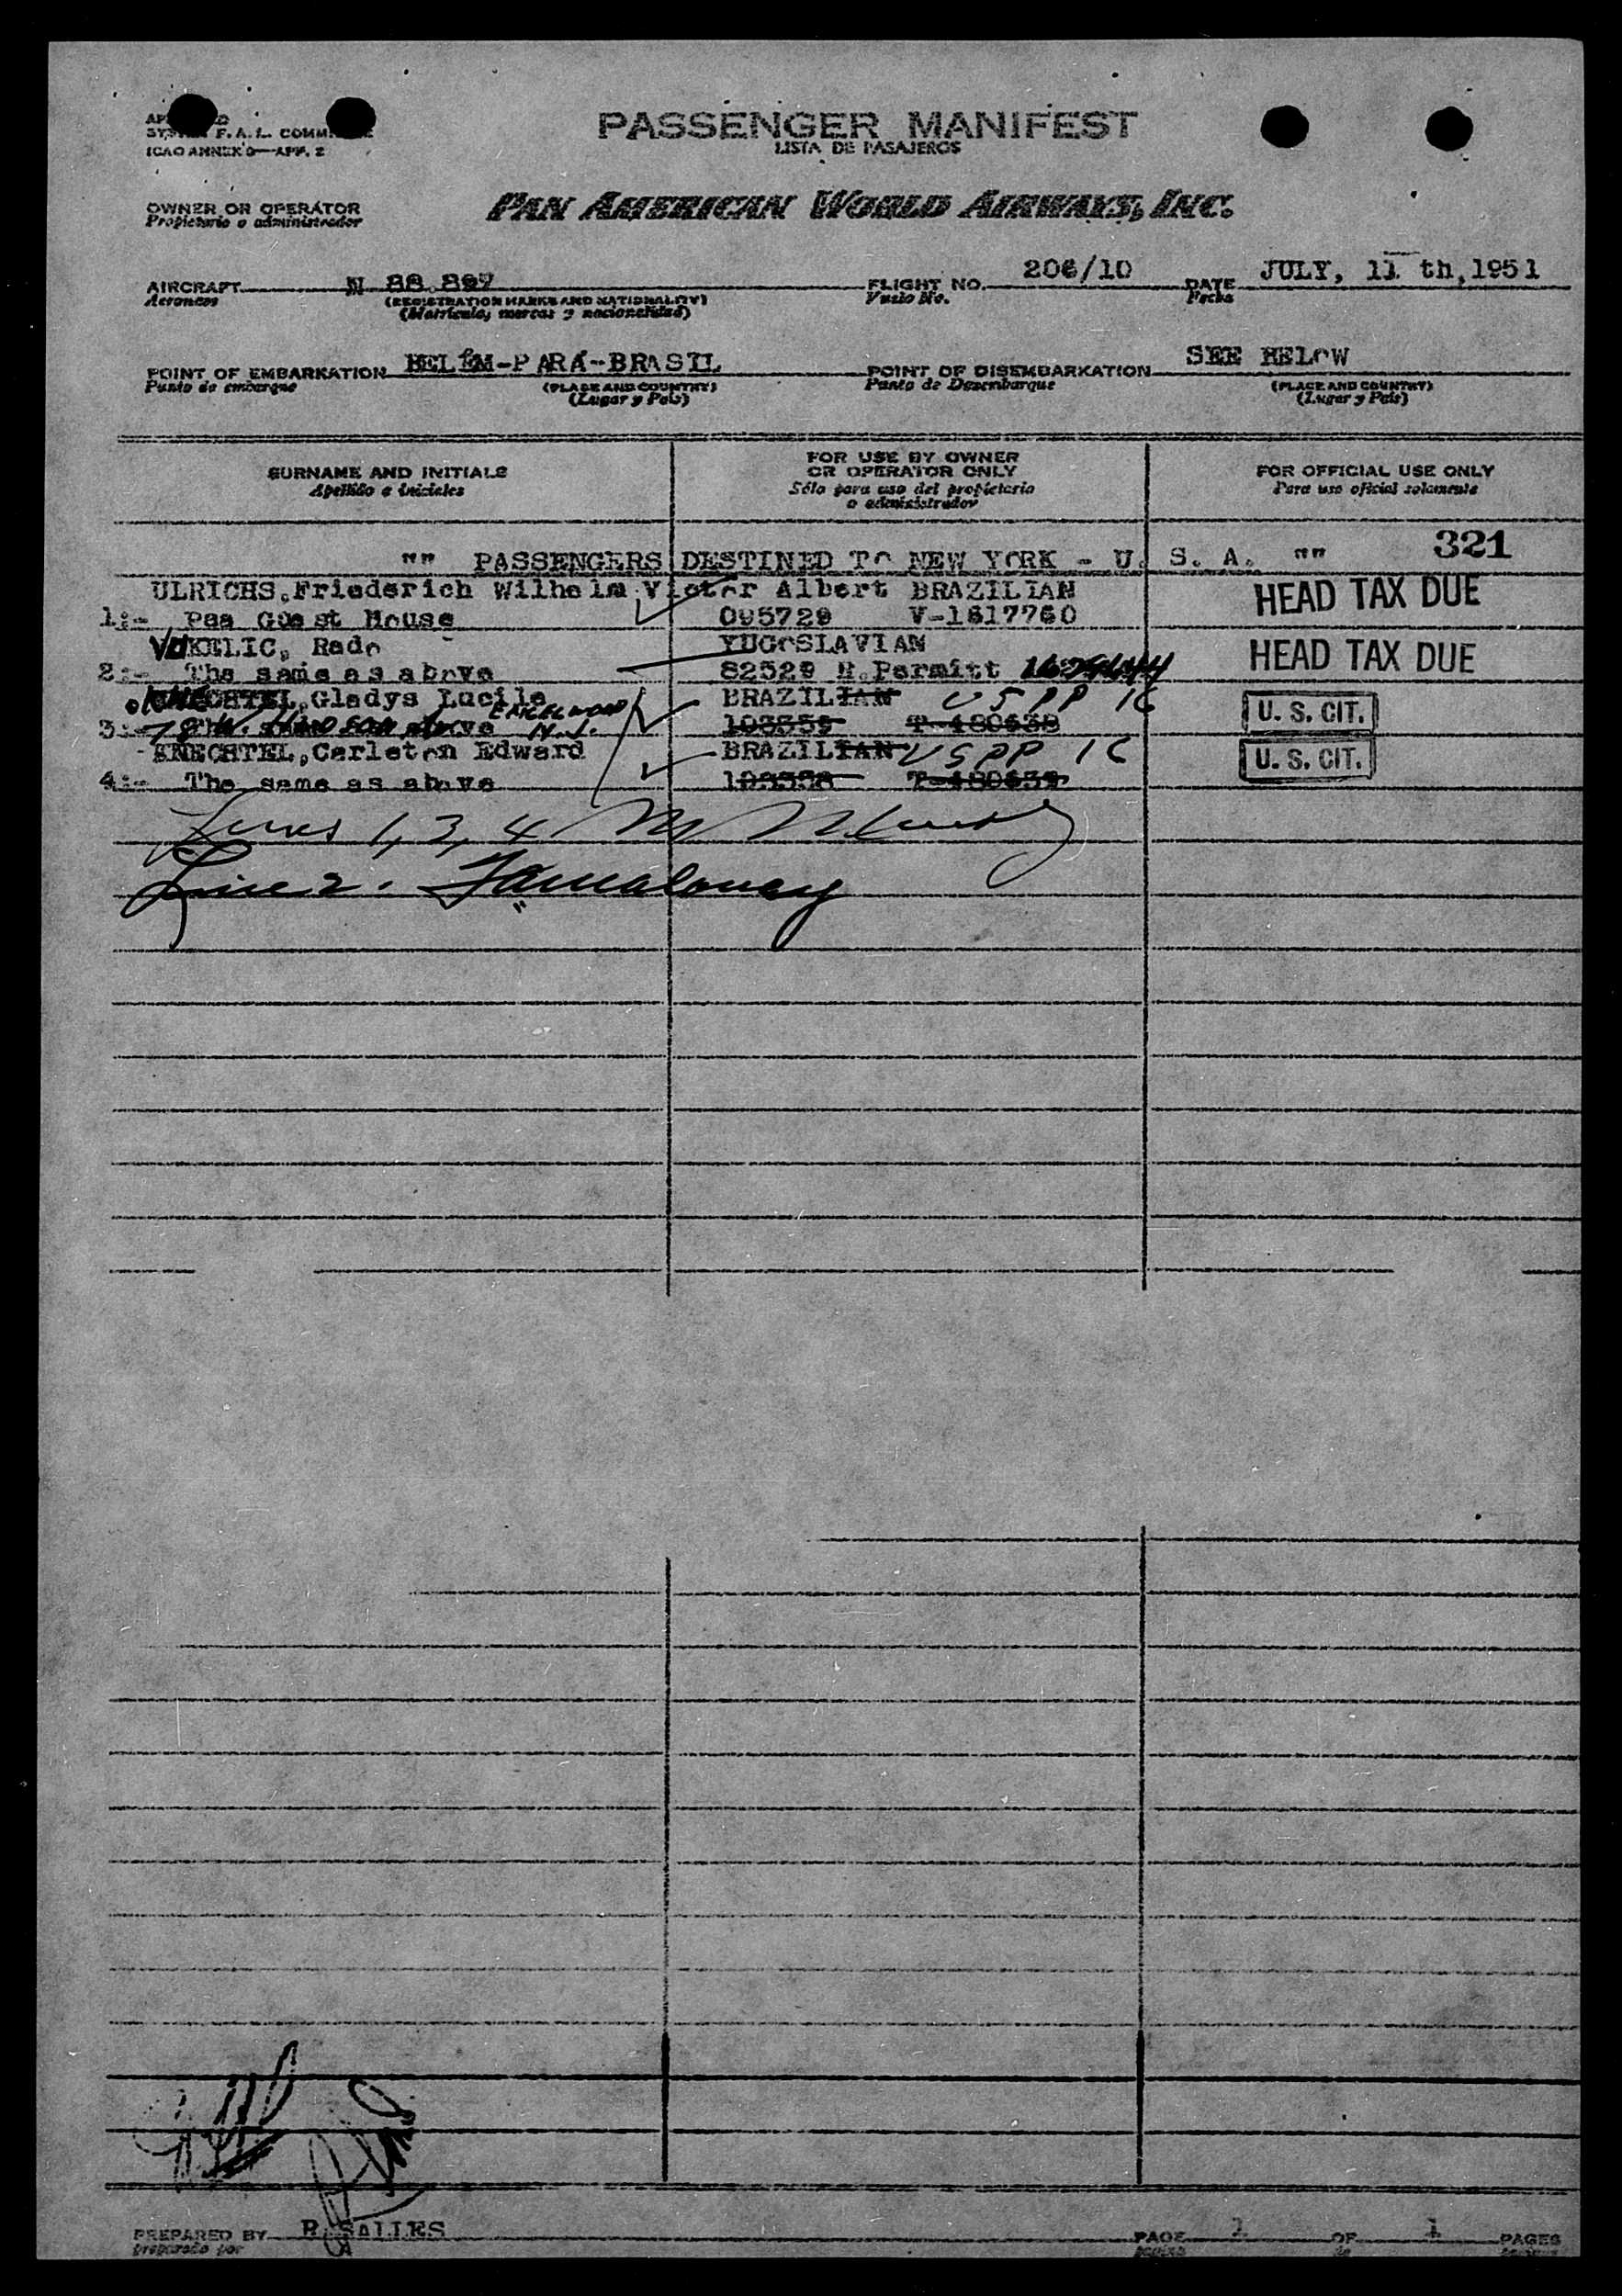 PASSENGER MANIFEST
LISTA DE PASAJEROS
F.A.L.
ICAO ANNEX 9—APP. 2
OWNER OR OPERATOR
Propietario o administrador
PAN AMERICAN WORLD AIRWAYS, INC.
AIRCRAFT N 88.867
Aeronave
(REGISTRATION MARKS AND NATIONALITY)
(Matrícula, marcas y nacionalidad)
FLIGHT NO. 206/10
Vuelo No.
DATE JULY, 11 th, 1951
Fecha
POINT OF EMBARKATION BELÉM-PARÁ-BRASIL
Punto de embarque
(PLACE AND COUNTRY)
(Lugar y País)
POINT OF DISEMBARKATION SEE BELOW
Punto de Desembarque
(PLACE AND COUNTRY)
(Lugar y País)
SURNAME AND INITIALS
Apellido e iniciales
FOR USE BY OWNER
OR OPERATOR ONLY
Sólo para uso del propietario
o administrador
FOR OFFICIAL USE ONLY
Para uso oficial solamente
"" PASSENGERS DESTINED TO NEW YORK - U. S. A. "" 321
ULRICHS, Friederich Wilhelm Victor Albert BRAZILIAN HEAD TAX DUE
1:- Paa Guest House 095729 V-1617760
VUKELIC, Rado YUGOSLAVIAN HEAD TAX DUE
2:- The same as above 82529 R.Permitt
KNECHTEL, Gladys Lucile BRAZILIAN USPP 16 U. S. CIT.
3:- ENGLEWOOD N.J. 103359 T-480638
KNECHTEL, Carleton Edward BRAZILIAN USPP 16 U. S. CIT.
4:- The same as above 103358 T-480639
Lines 1, 3, 4
Line 2.
PREPARED BY R. SALLES
preparado por
PAGE 1 OF 1 PAGES